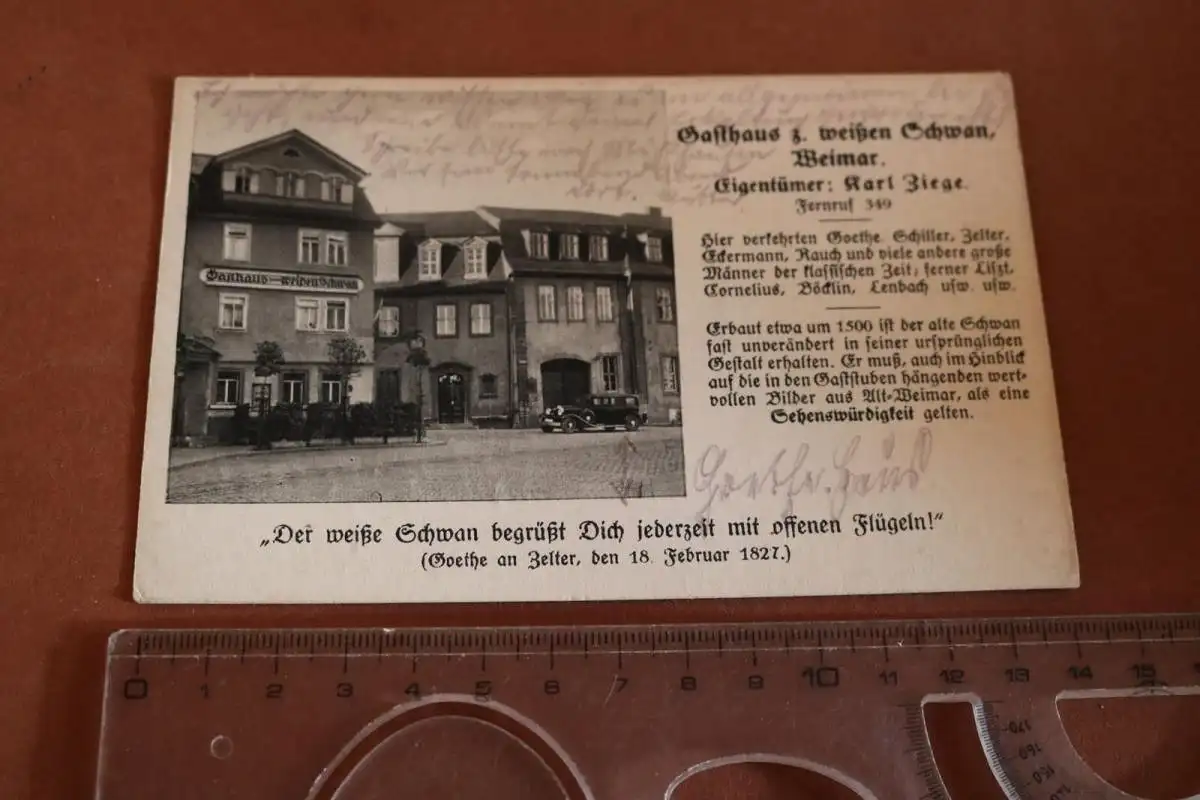 Gasthaus z. weißen Schwan,
Weimar.
Eigentümer: Karl Ziege.
Fernruf 349
Hier verkehrten Goethe, Schiller, Zelter,
Eckermann, Rauch und viele andere große
Männer der klassischen Zeit; ferner Liszt,
Cornelius, Böcklin, Lenbach usw. usw.
Erbaut etwa um 1500 ist der alte Schwan
fast unverändert in seiner ursprünglichen
Gestalt erhalten. Er muß, auch im Hinblick
auf die in den Gaststuben hängenden wert-
vollen Bilder aus Alt-Weimar, als eine
Sehenswürdigkeit gelten.
Gasthaus weißen Schwan
Goethe-Haus
„Der weiße Schwan begrüßt Dich jederzeit mit offenen Flügeln!“
(Goethe an Zelter, den 18. Februar 1827.)
0 1 2 3 4 5 6 7 8 9 10 11 12 13 14 15
170
160
150